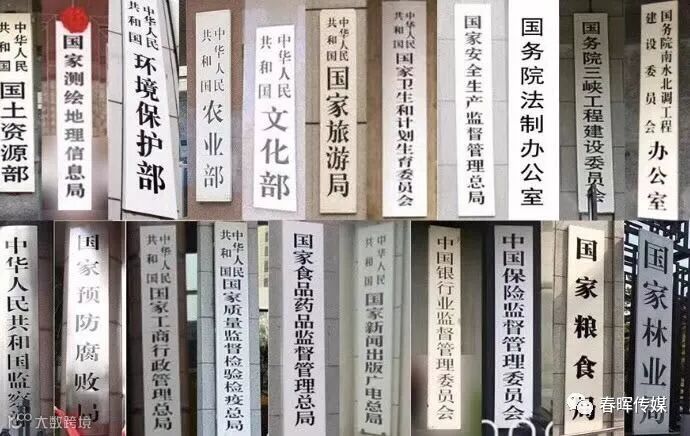 中华人民
共和国
国土资源部
国家测绘地理信息局
中华人民
共和国
环境保护部
中华人民
共和国
农业部
中华人民
共和国
文化部
中华人民
共和国
国家旅游局
中华人民
共和国
国家卫生和计划生育委员会
国家安全生产监督管理总局
国务院法制办公室
国务院三峡工程建设委员会
国务院南水北调工程
建设委员会
办公室
中华人民共和国监察
国家预防腐败局
中华人民
共和国
国家工商行政管理总局
中华人民
共和国
国家质量监督检验检疫总局
国家食品药品监督管理总局
中华人民
共和国
国家新闻出版广电总局
中国银行业监督管理委员会
中国保险监督管理委员会
国家粮食局
国家林业局
大数跨境
春晖传媒